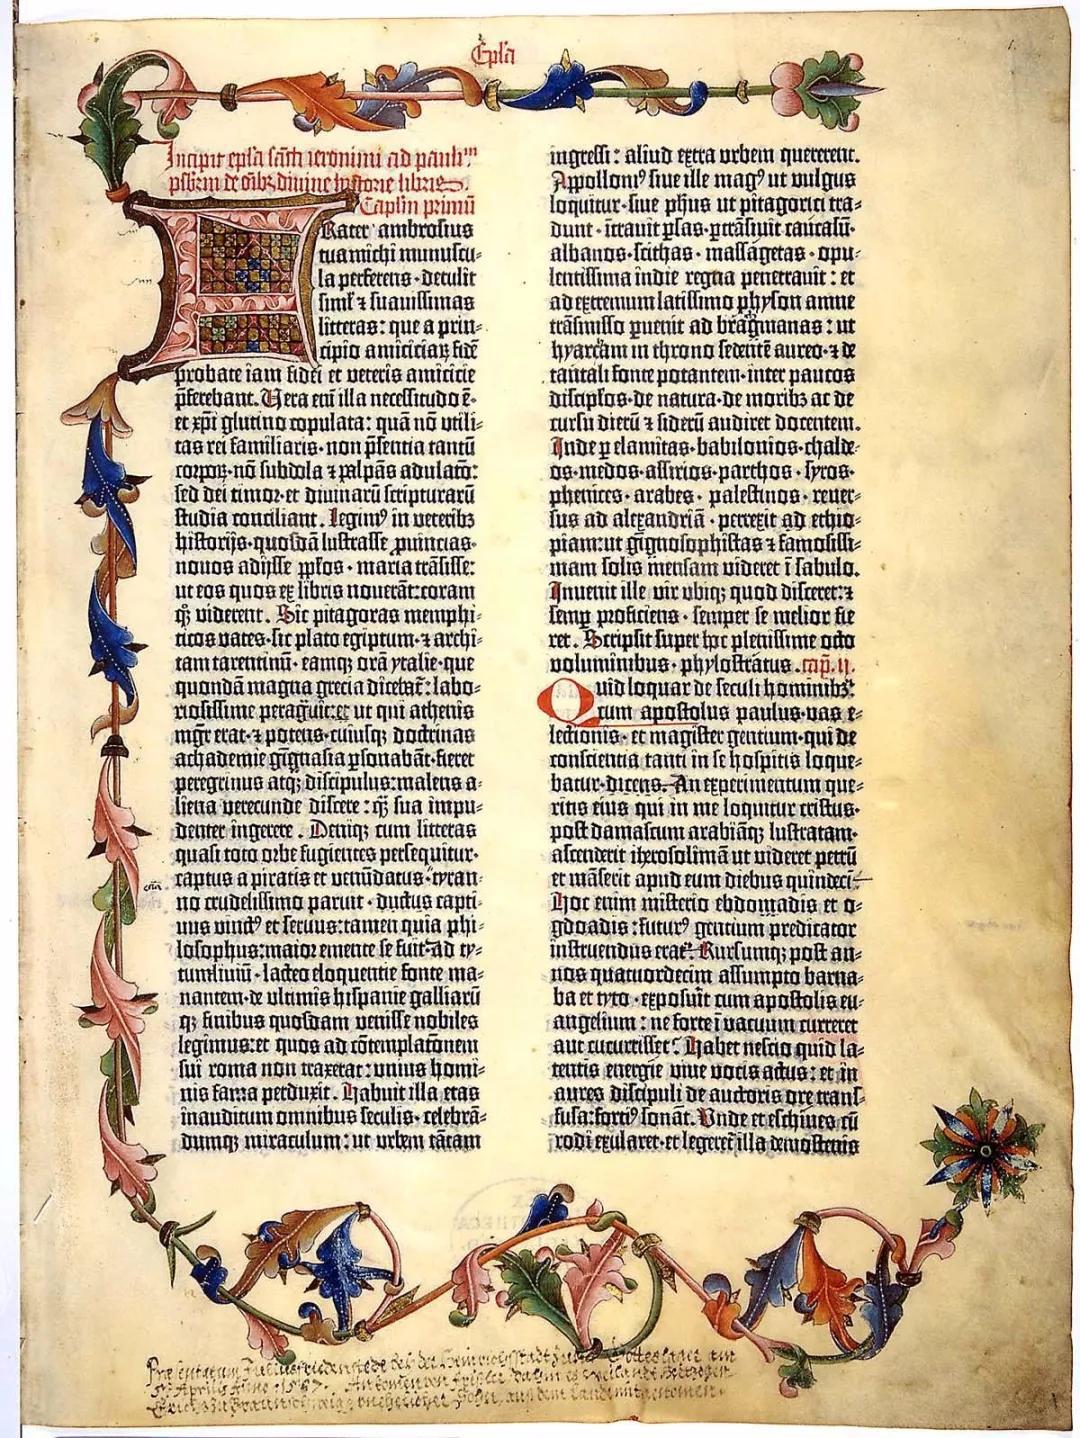 Epl̃a
Incipit epl̃a sãcti ieronimi ad paulinũ
pb̃rm de om̃ibꝫ divine hystorie libris.
Capl̃m primũ
Frater ambrosius
tua michi munuscu-
la perferens · detulit
siml̃ ꝛ suauissimas
litteras: que a prin-
cipio amiciciaꝝ fidẽ
probate iam fidei et veteris amicicie
p̃ferebant. Vera em̃ illa necessitudo ẽ·
et xp̃i glutino copulata: quã nõ utili-
tas rei familiaris· non p̃sentia tantũ
corpoꝝ· nõ subdola ꝛ palpãs adulatio:
sed dei timor· et diuinarũ scripturarũ
studia conciliant. Legimꝰ in veteribꝫ
historijs· quosdã lustrasse ꝓuincias·
nouos adijsse pp̃los· maria trãsisse:
ut eos quos ex libris nouerãt: coram
qꝫ viderent. Sic pitagoras memphi-
ticos vates· sic plato egiptum· ꝛ archi-
tam tarentinũ· eamqꝫ orã ytalie· que
quondã magna grecia dicebat̃: labo-
riosissime peragrauit: et ut qui athenis
mgr̃ erat· ꝛ potens· cuiusqꝫ doctrinas
achademie gignasia ꝑsonabãt· fieret
peregrinus atqꝫ discipulus: malens a-
liena verecunde discere: qꝫ sua impu-
denter ingerere. Deniqꝫ cum litteras
quasi toto orbe fugientes persequitur·
captus a piratis et venũdatus· tyran-
no crudelissimo paruit· ductus capti-
uus vinctꝰ et seruus: tamen quia phi-
losophus: maior emente se fuit· ad ty-
tumliuiũ· lacteo eloquentie fonte ma-
nantem· de ultimis hispanie galliarũ
qꝫ finibus quosdam venisse nobiles
legimus: et quos ad cõtemplationem
sui roma non traxerat: unius homi-
nis fama perduxit. Habuit illa etas
inauditum omnibus seculis· celebrã-
dumqꝫ miraculum: ut urbem tãtam
ingressi: aliud extra urbem quererent.
Appollonꝰ siue ille magꝰ ut vulgus
loquitur· siue ph̃us ut pitagorici tra-
dunt· ĩtrauit ꝑsas· ꝑtrãsiuit caucasũ·
albanos· scithas· massagetas· opu-
lentissima indie regna penetrauit: et
ad extremum latissimo physon amne
trãsmisso ꝑuenit ad bragmanas: ut
hyarcam in throno sedentẽ aureo· ꝛ de
tantali fonte potantem· inter paucos
discip̃los· de natura· de moribꝫ ac de
cursu dierũ ꝛ siderũ audiret docentem.
Inde ꝑ elamitas· babilonios· chalde-
os· medos· assirios· parthos· syros·
phenices· arabes· palestinos· reuer-
sus ad alexandriã· perrexit ad ethio-
piam: ut gignosophistas ꝛ famosissi-
mam solis mensam videret ĩ sabulo.
Inuenit ille vir ubiqꝫ quod disceret: ꝛ
semꝑ proficiens· semper se melior fie
ret. Scripsit super hoc plenissime octo
voluminibus· phylostratus. cap̃. II.
Quid loquar de seculi hominibꝫ:
cum apostolus paulus· vas e-
lectionis· et magister gentium· qui de
conscientia tanti in se hospitis loque-
batur· dicens. An experimentum que-
ritis eius qui in me loquitur cristus·
post damascum arabiãqꝫ lustratam·
ascenderit iherosolimã ut videret petrũ
et mãserit apud eum diebus quindeci·
Hoc enim misterio ebdomadis et o-
gdoadis: futurꝰ gentium predicator
instruendus erat. Rursumqꝫ post an-
nos quatuordecim assumpto barna-
ba et tyto· exposuit cum apostolis eu-
angelium: ne forte ĩ vacuum curreret
aut cucurrisset. Habet nescio quid la-
tentis energie viue vocis actus: et in
aures discipuli de auctoris ore trans-
fusa: fortiꝰ sonãt. Unde et eschines cũ
rodi exularet· et legeret̃ illa demostenis